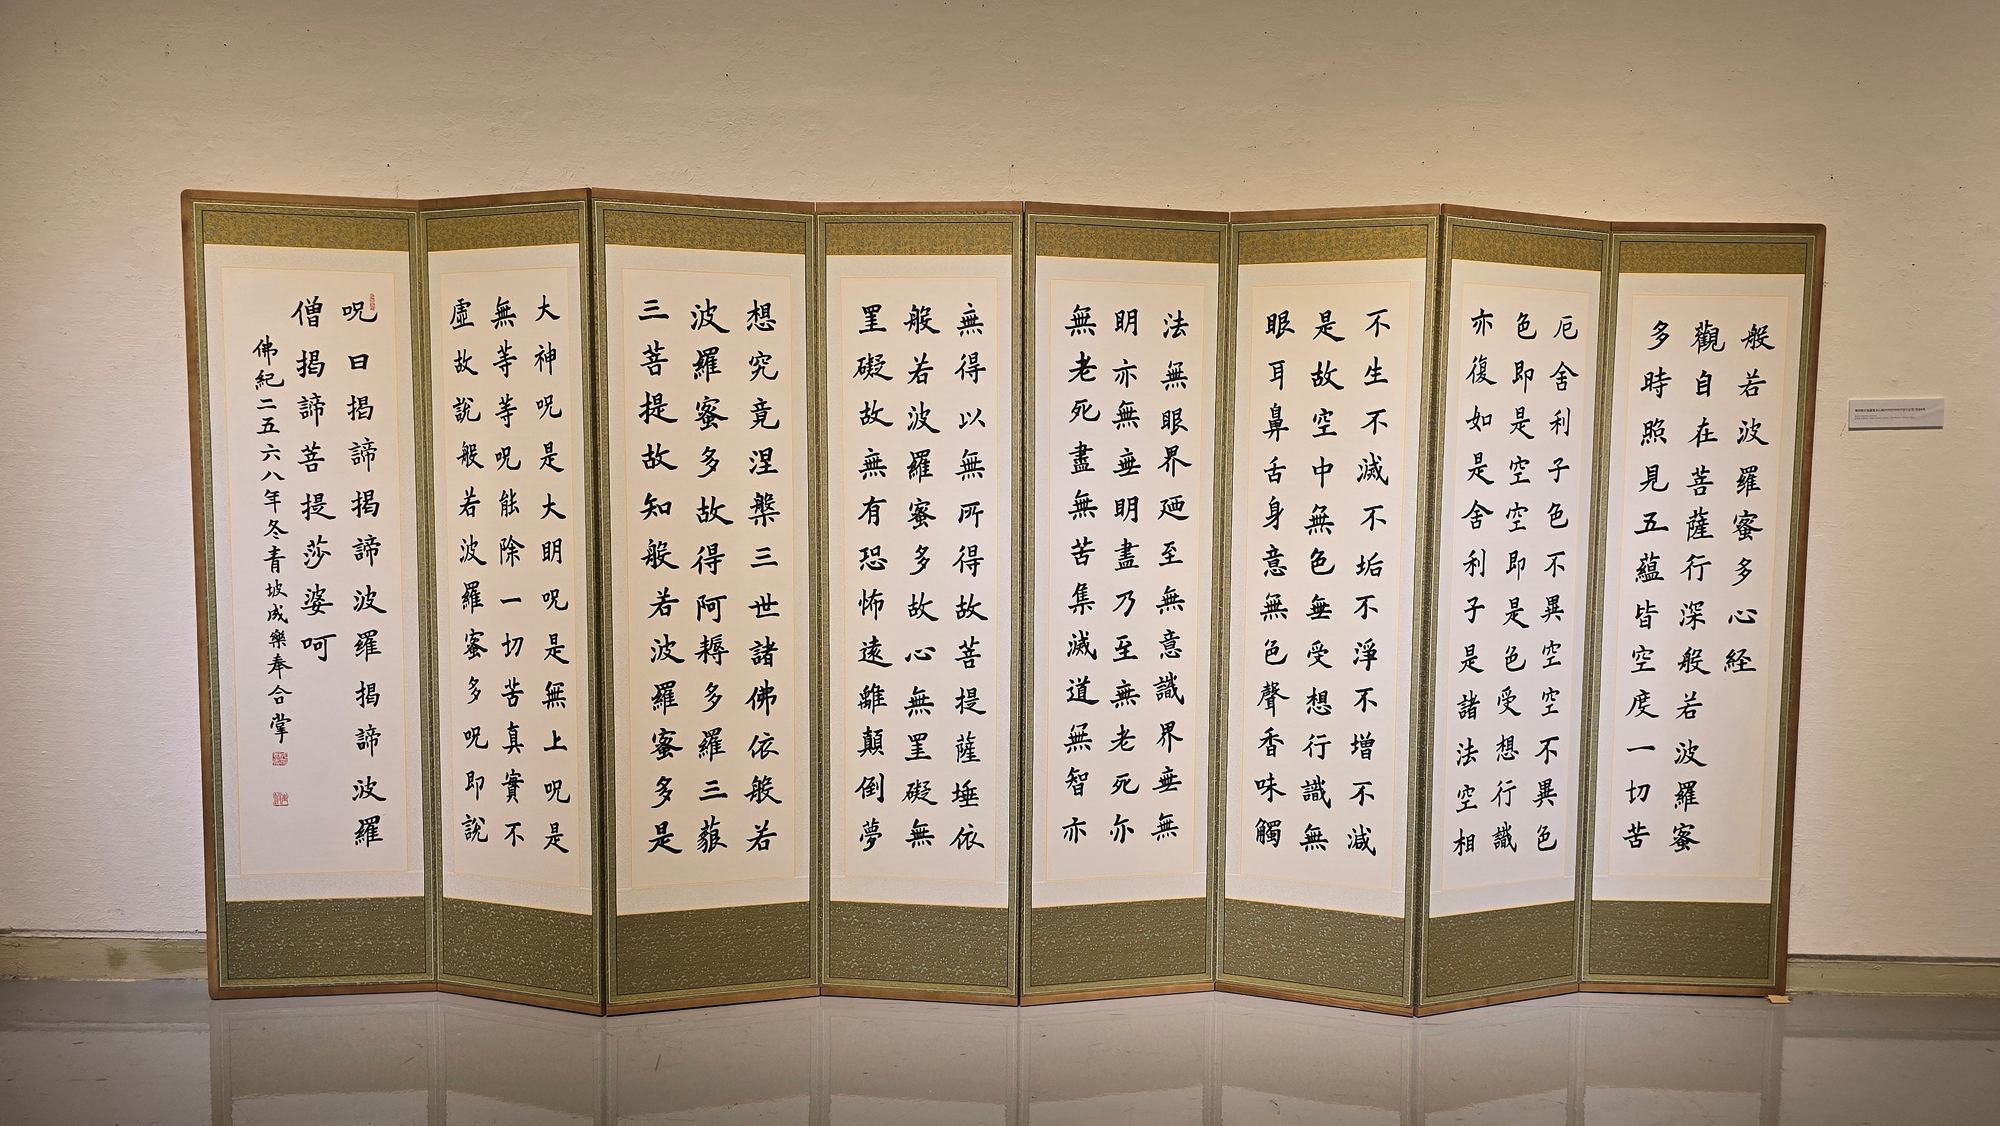 般若波羅蜜多心経
觀自在菩薩行深般若波羅蜜
多時照見五蘊皆空度一切苦
厄舍利子色不異空空不異色
色即是空空即是色受想行識
亦復如是舍利子是諸法空相
不生不滅不垢不淨不增不減
是故空中無色無受想行識無
眼耳鼻舌身意無色聲香味觸
法無眼界廼至無意識界無無
明亦無無明盡乃至無老死亦
無老死盡無苦集滅道無智亦
無得以無所得故菩提薩埵依
般若波羅蜜多故心無罣礙無
罣礙故無有恐怖遠離顛倒夢
想究竟涅槃三世諸佛依般若
波羅蜜多故得阿耨多羅三藐
三菩提故知般若波羅蜜多是
大神呪是大明呪是無上呪是
無等等呪能除一切苦真實不
虛故說般若波羅蜜多呪即說
呪曰揭諦揭諦波羅揭諦波羅
僧揭諦菩提莎婆呵
佛紀二五六八年冬青坡成樂奉合掌